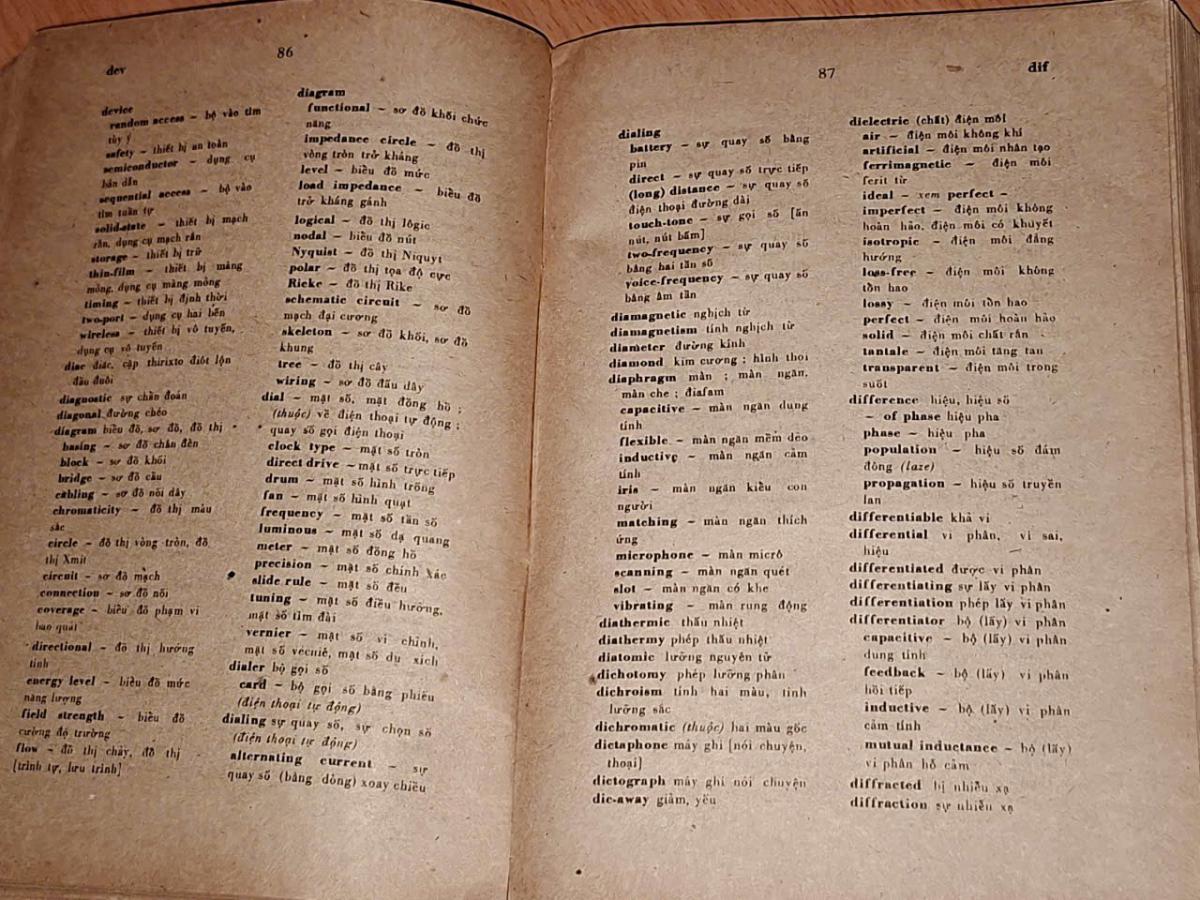 86
dev
device
random access – bộ vào tìm
tùy ý
safety – thiết bị an toàn
semiconductor – dụng cụ
bán dẫn
sequential access – bộ vào
tìm tuần tự
solid-state – thiết bị mạch
rắn, dụng cụ mạch rắn
storage – thiết bị trữ
thin-film – thiết bị màng
mỏng, dụng cụ màng mỏng
timing – thiết bị định thời
two-port – dụng cụ hai bến
wireless – thiết bị vô tuyến,
dụng cụ vô tuyến
diac điac, cặp thirixto điôt lộn
đầu đuôi
diagnostic sự chẩn đoán
diagonal đường chéo
diagram biểu đồ, sơ đồ, đồ thị
basing – sơ đồ chân đèn
block – sơ đồ khối
bridge – sơ đồ cầu
cabling – sơ đồ nối dây
chromaticity – đồ thị màu
sắc
circle – đồ thị vòng tròn, đồ
thị Xmit
circuit – sơ đồ mạch
connection – sơ đồ nối
coverage – biểu đồ phạm vi
bao quát
directional – đồ thị hướng
tính
energy level – biểu đồ mức
năng lượng
field strength – biểu đồ
cường độ trường
flow – đồ thị chảy, đồ thị
[trình tự, lưu trình]
diagram
functional – sơ đồ khối chức
năng
impedance circle – đồ thị
vòng tròn trở kháng
level – biểu đồ mức
load impedance – biểu đồ
trở kháng gánh
logical – đồ thị lôgic
nodal – biểu đồ nút
Nyquist – đồ thị Niquyt
polar – đồ thị tọa độ cực
Rieke – đồ thị Rike
schematic circuit – sơ đồ
mạch đại cương
skeleton – sơ đồ khối, sơ đồ
khung
tree – đồ thị cây
wiring – sơ đồ đấu dây
dial – mặt số, mặt đồng hồ ;
(thuộc) về điện thoại tự động ;
quay số gọi điện thoại
clock type – mặt số tròn
direct drive – mặt số trực tiếp
drum – mặt số hình trống
fan – mặt số hình quạt
frequency – mặt số tần số
luminous – mặt số dạ quang
meter – mặt số đồng hồ
precision – mặt số chính xác
slide rule – mặt số đều
tuning – mặt số điều hưởng,
mặt số tìm đài
vernier – mặt số vi chỉnh,
mặt số vecniê, mặt số du xích
dialer bộ gọi số
card – bộ gọi số bằng phiếu
(điện thoại tự động)
dialing sự quay số, sự chọn số
(điện thoại tự động)
alternating current – sự
quay số (bằng dòng) xoay chiều
87
dif
dialing
battery – sự quay số bằng
pin
direct – sự quay số trực tiếp
(long) distance – sự quay số
điện thoại đường dài
touch-tone – sự gọi số [ấn
nút, nút bấm]
two-frequency – sự quay số
bằng hai tần số
voice-frequency – sự quay số
bằng âm tần
diamagnetic nghịch từ
diamagnetism tính nghịch từ
diameter đường kính
diamond kim cương ; hình thoi
diaphragm màn ; màn ngăn,
màn che ; điafam
capacitive – màn ngăn dung
tính
flexible – màn ngăn mềm dẻo
inductive – màn ngăn cảm
tính
iris – màn ngăn kiểu con
người
matching – màn ngăn thích
ứng
microphone – màn micrô
scanning – màn ngăn quét
slot – màn ngăn có khe
vibrating – màn rung động
diathermic thấu nhiệt
diathermy phép thấu nhiệt
diatomic lưỡng nguyên tử
dichotomy phép lưỡng phân
dichroism tính hai màu, tính
lưỡng sắc
dichromatic (thuộc) hai màu gốc
dictaphone máy ghi [nói chuyện,
thoại]
dictograph máy ghi nói chuyện
die-away giảm, yếu
dielectric (chất) điện môi
air – điện môi không khí
artificial – điện môi nhân tạo
ferrimagnetic – điện môi
ferit từ
ideal – xem perfect –
imperfect – điện môi không
hoàn hảo, điện môi có khuyết
isotropic – điện môi đẳng
hướng
loss-free – điện môi không
tổn hao
lossy – điện môi tổn hao
perfect – điện môi hoàn hảo
solid – điện môi chất rắn
tantale – điện môi tăng tan
transparent – điện môi trong
suốt
difference hiệu, hiệu số
– of phase hiệu pha
phase – hiệu pha
population – hiệu số đám
đông (laze)
propagation – hiệu số truyền
lan
differentiable khả vi
differential vi phân, vi sai,
hiệu
differentiated được vi phân
differentiating sự lấy vi phân
differentiation phép lấy vi phân
differentiator bộ (lấy) vi phân
capacitive – bộ (lấy) vi phân
dung tính
feedback – bộ (lấy) vi phân
hồi tiếp
inductive – bộ (lấy) vi phân
cảm tính
mutual inductance – bộ (lấy)
vi phân hỗ cảm
diffracted bị nhiễu xạ
diffraction sự nhiễu xạ